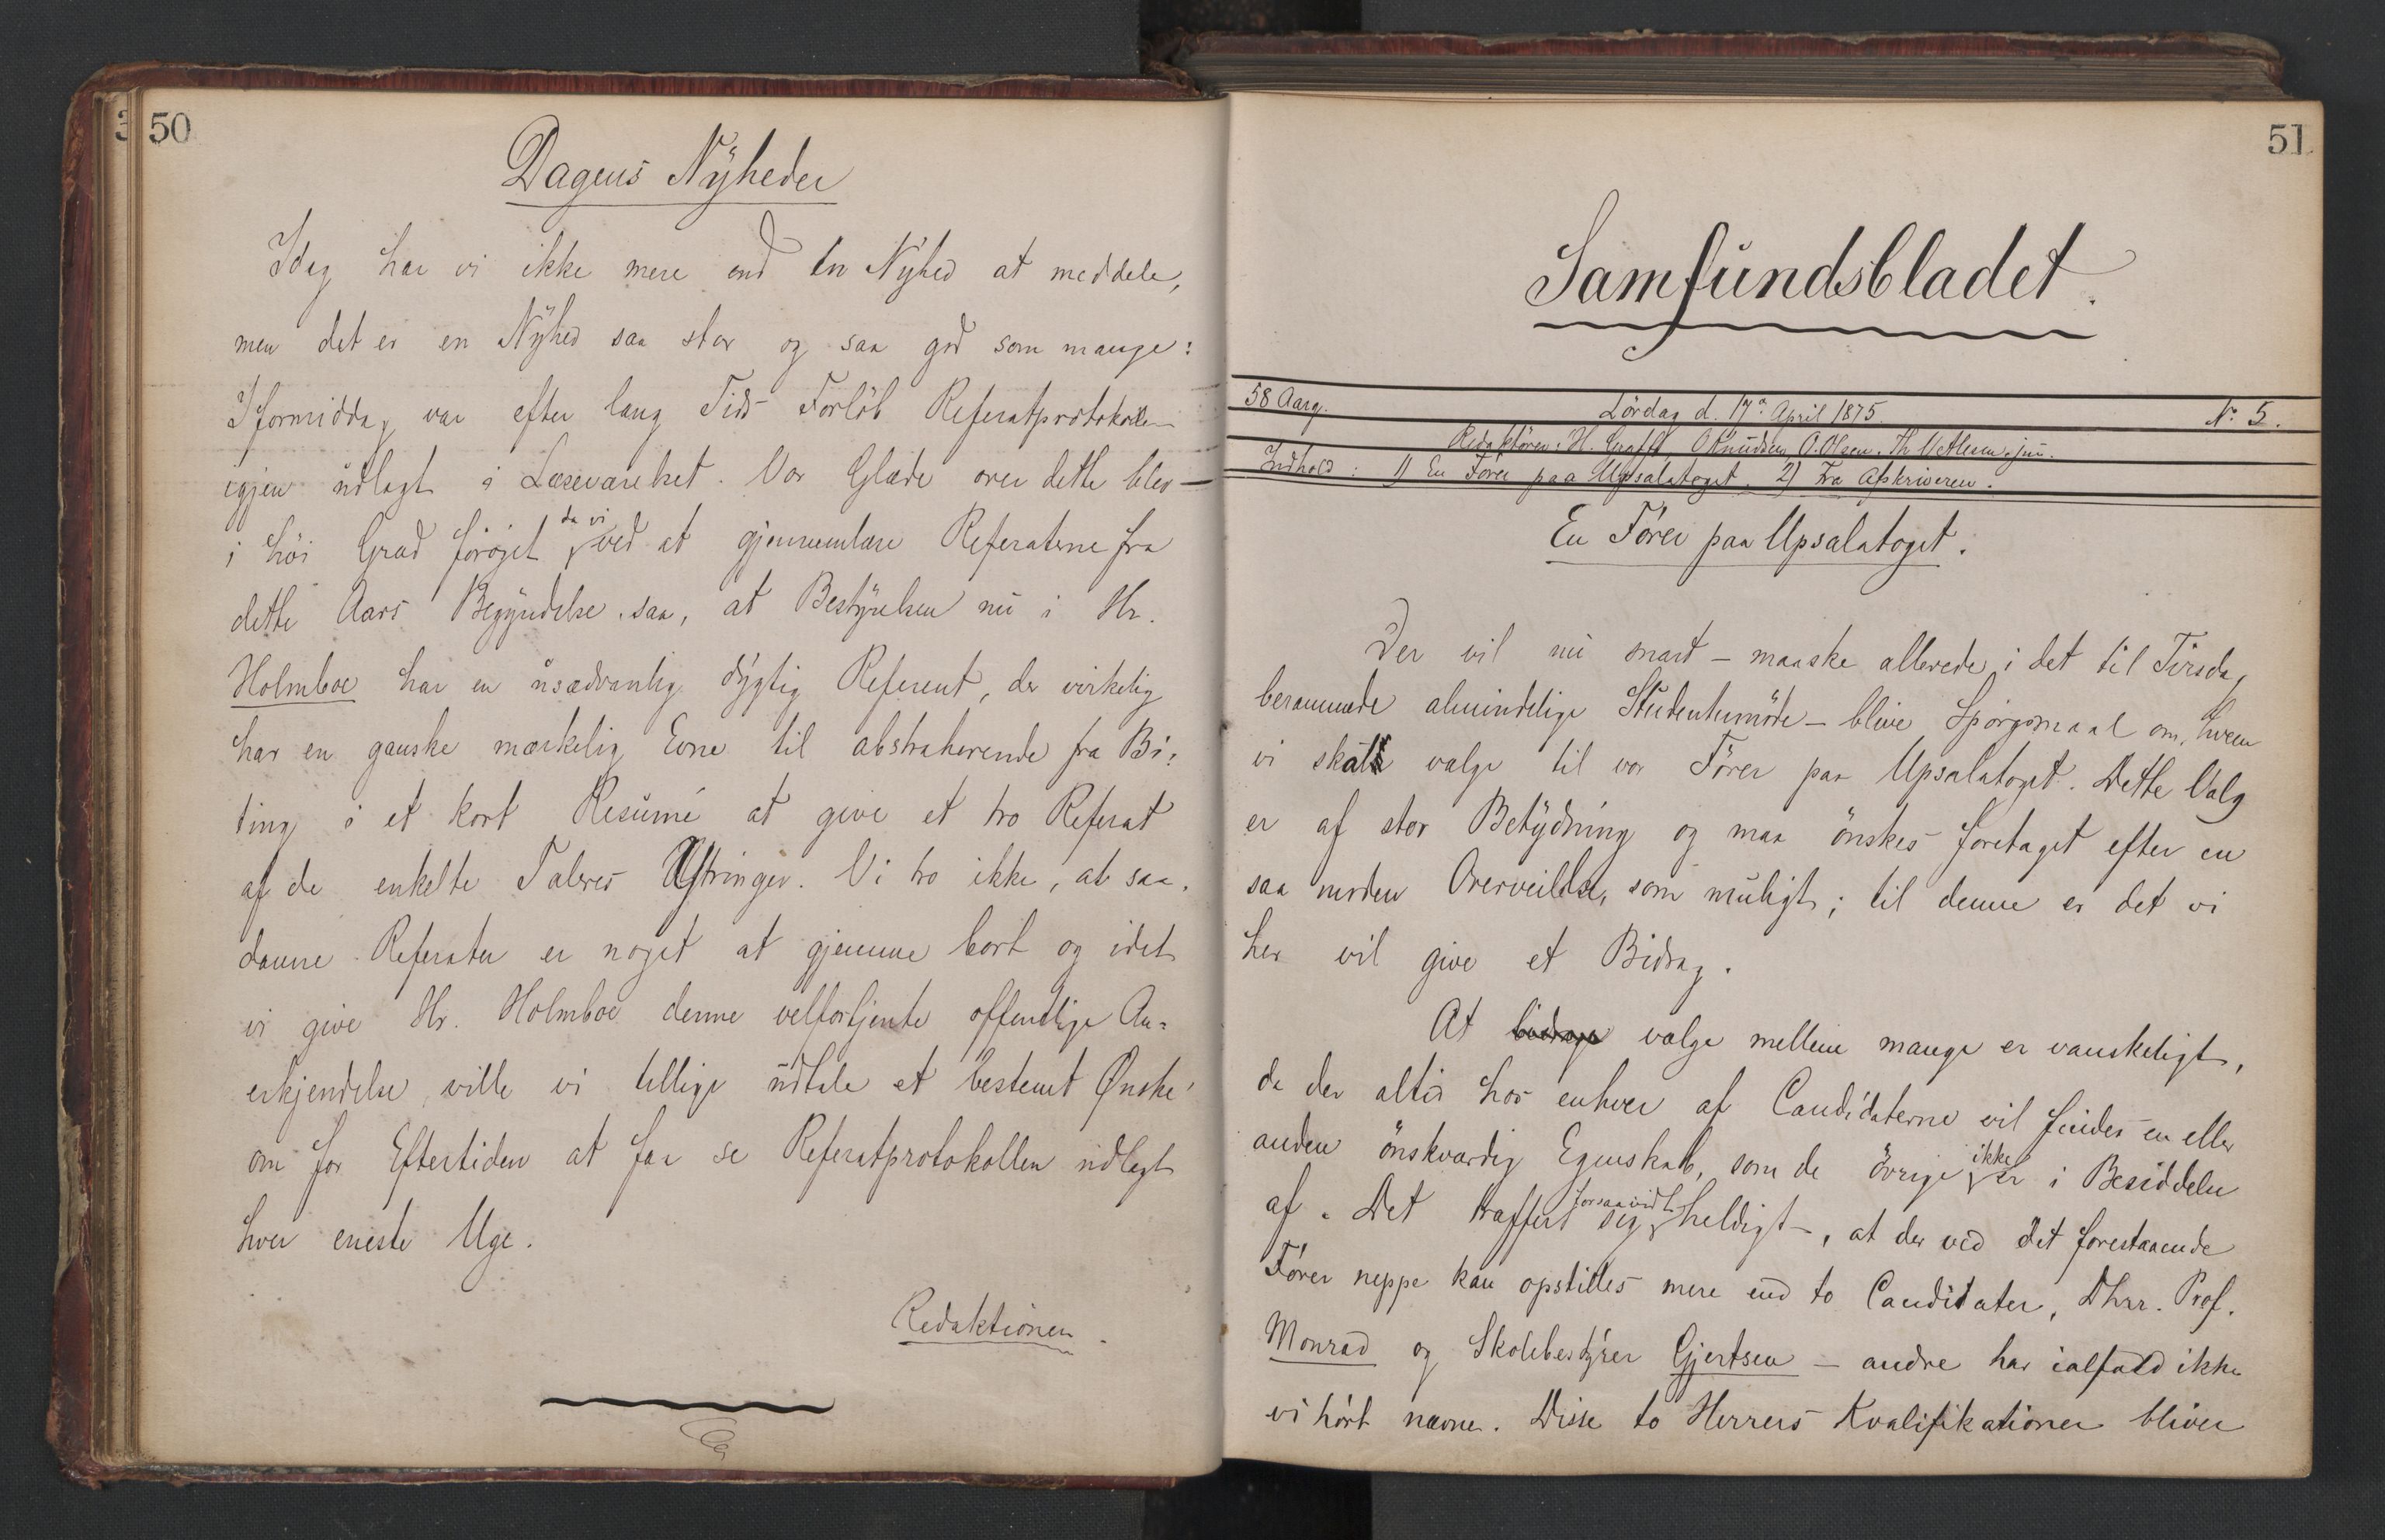 50
Dagens Nyheder
Idag har vi ikke mere end en Nyhed at meddele,
men det er en Nyhed saa stor og saa god som mange:
Iformiddag var efter lang Tids Forløb Referatprotokollen
igjen udlagt i Læseværelset. Vor Glæde over dette blev
i høi Grad forøget da vi ved at gjennemlæse Referaterne fra
dette Aars Begyndelse saa, at Bestyrelsen nu i Hr.
Holmboe har en usædvanlig dygtig Referent, der virkelig
har en ganske mærkelig Evne til abstraherende fra Bi-
ting i et kort Resumé at give et tro Referat
af de enkelte Taleres Ytringer. Vi tro ikke, at saa-
danne Referater er noget at gjemme bort og idet
vi give Hr. Holmboe denne velfortjente offentlige An-
erkjendelse, ville vi tillige udtale et bestemt Ønske
om for Eftertiden at faa se Referatprotokollen udlagt
hver eneste Uge.
Redaktionen.
51
Samfundsbladet.
58 Aarg. Lördag d. 17de April 1875. No 5.
Redaktörer: H. O Knudsen, O. Olsen, Th jun.
Indhold: 1) En Fører paa Upsalatoget. 2) Fra Afskriveren.
En Fører paa Upsalatoget.
Der vil nu snart – maaske allerede i det til Tirsdag
berammede almindelige Studentermöde – blive Spörgsmaal om, hvem
vi skal vælge til vor Förer paa Upsalatoget. Dette Valg
er af stor Betydning og maa önskes foretaget efter en
saa moden Overveielse, som muligt; til denne er det vi
her vil give et Bidrag.
At vælge mellem mange er vanskeligt,
da der altid hos enhver af Candidaterne vil findes en eller
anden önskværdig Egenskab, som de övrige ikke er i Besiddelse
af. Det træffer sig forsaavidt heldigt, at der ved det forestaaende
Fører neppe kan opstilles mere end to Candidater, Dhrr. Prof.
Monrad og Skolebestyrer Gjertsen – andre har ialfald ikke
vi hört nævne. Disse to Herrers Kvalifikationer bliver